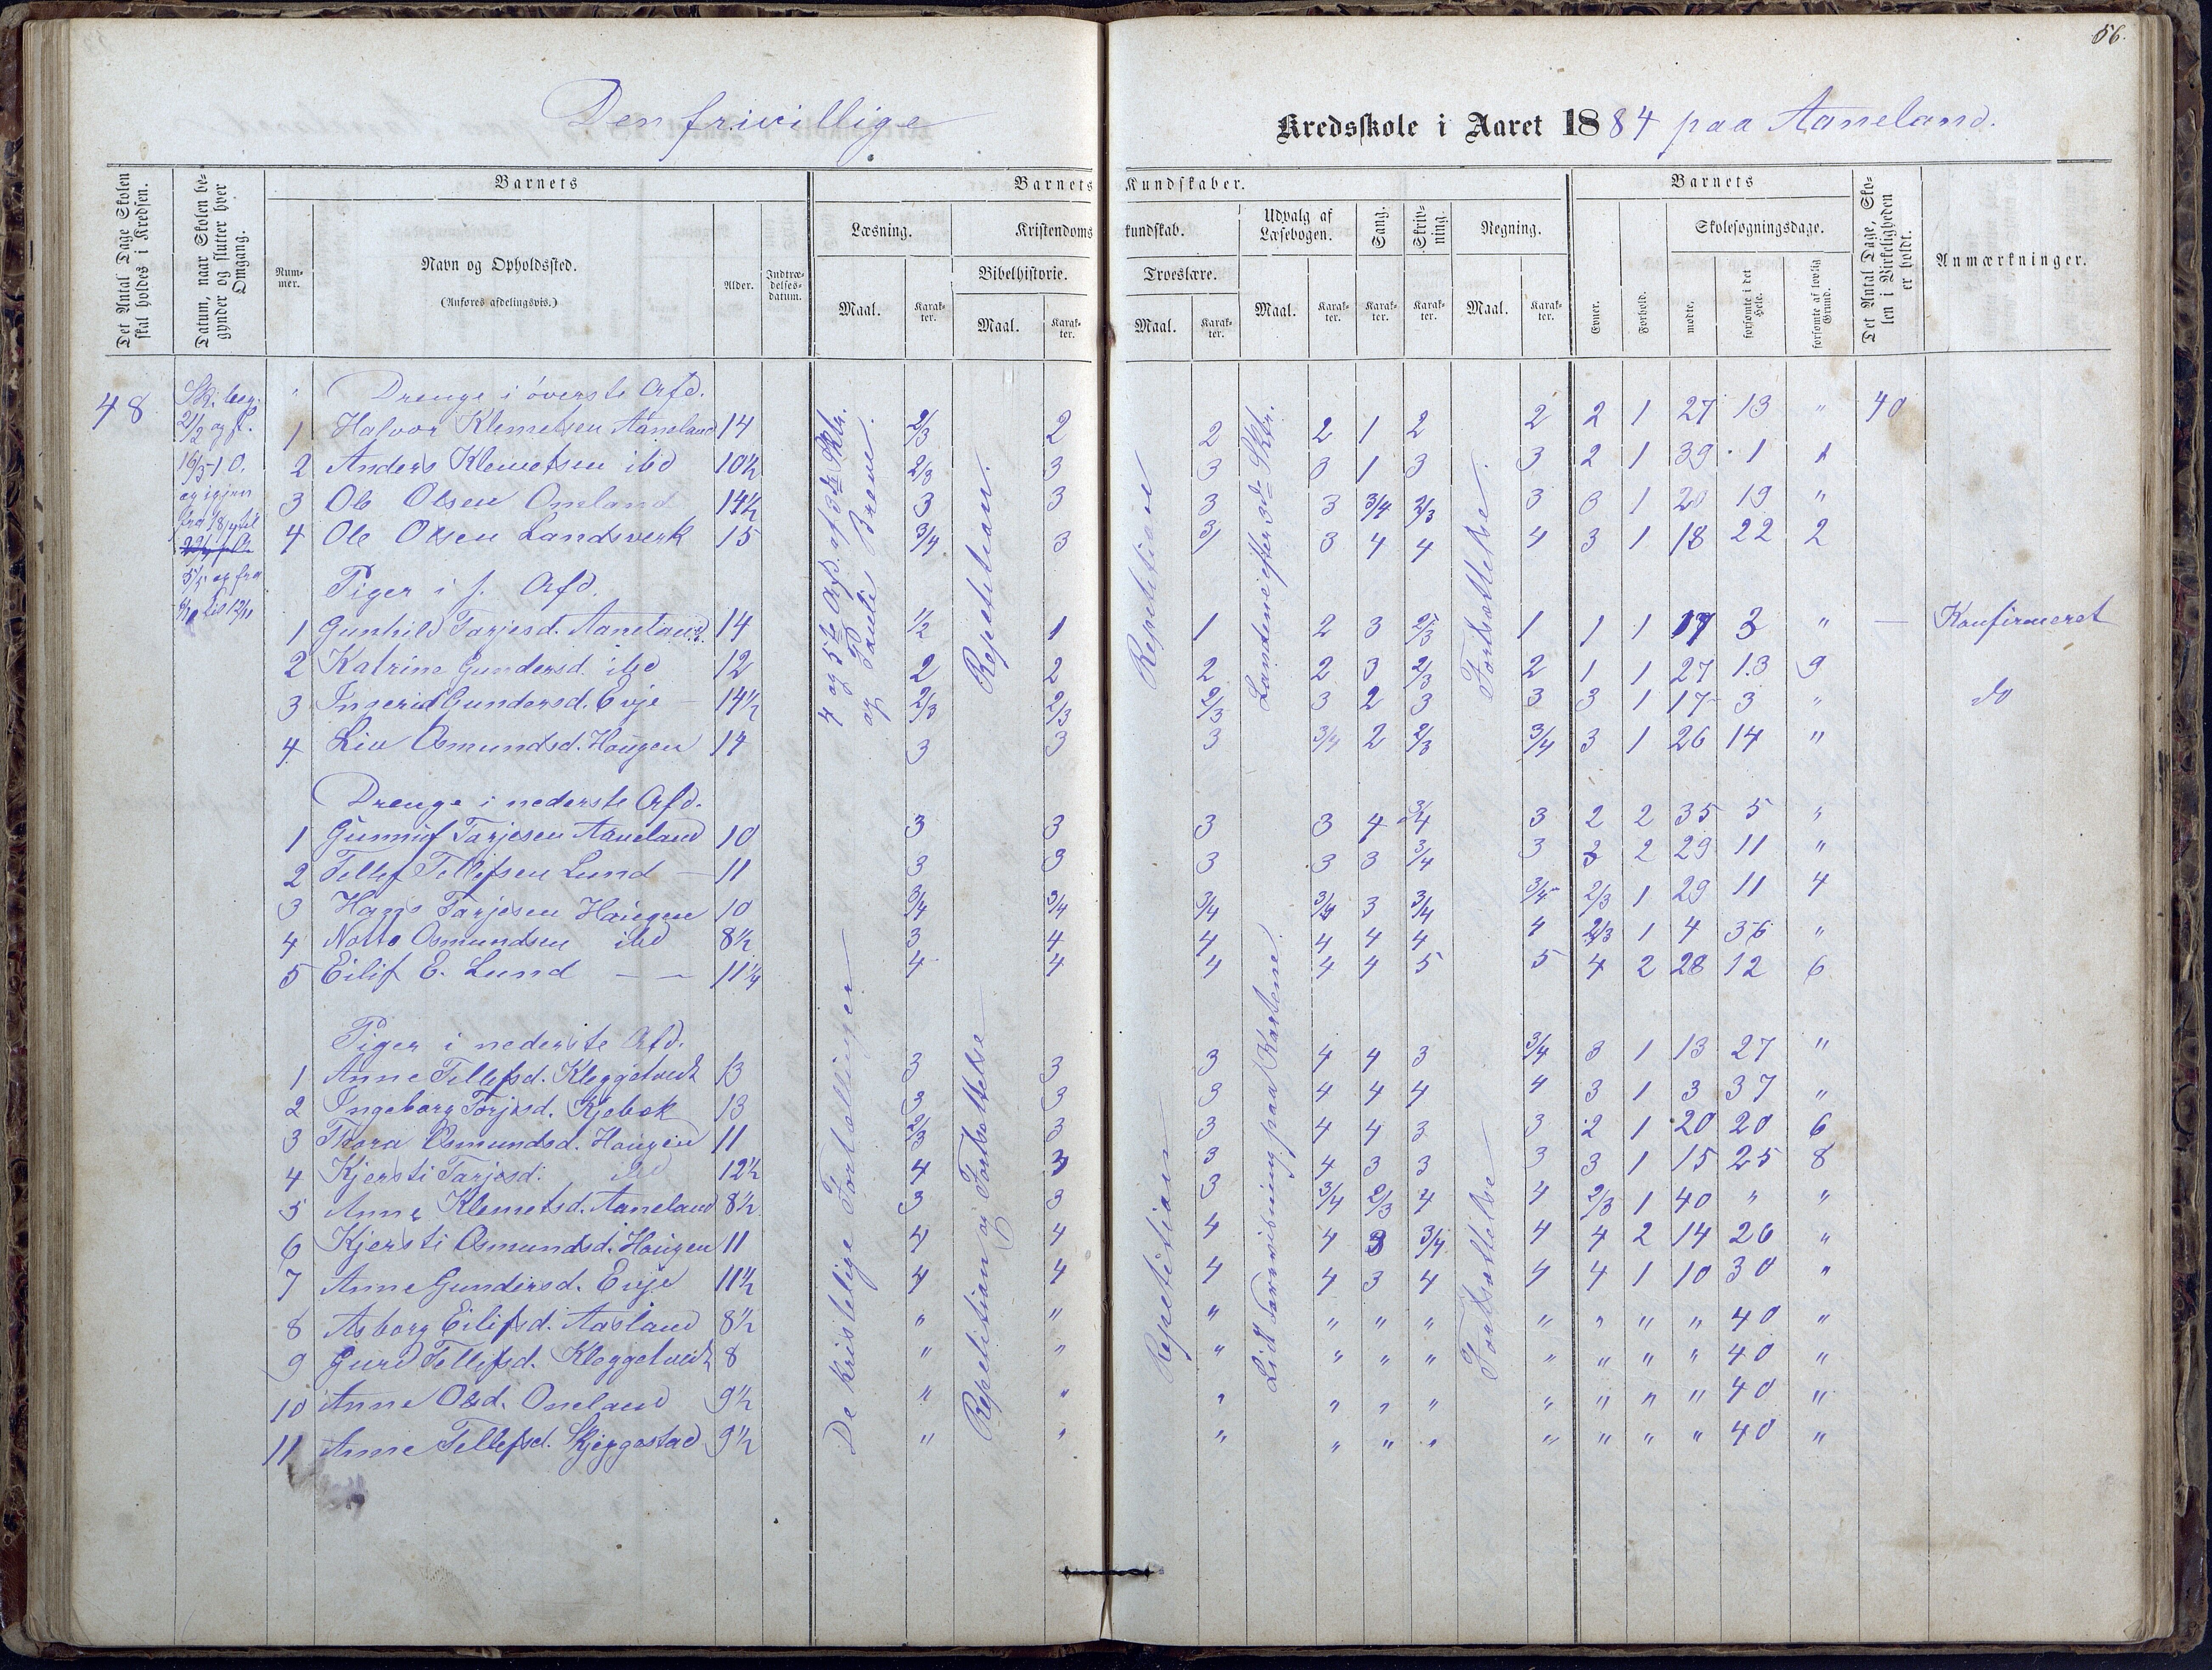 56.
Den frivillige Kredsskole i Aaret 1884 paa Aaneland.
Det Antal Dage Skolen skal holdes i Kredsen.
Datum, naar Skolen begynder og slutter hver Omgang.
Barnets
Nummer.
Navn og Opholdssted.
(Anføres afdelingsvis.)
Alder.
Indtrædelsesdatum.
Barnets Kundskaber.
Læsning.
Maal.
Karakter.
Kristendomskundskab.
Bibelhistorie.
Maal.
Karakter.
Troeslære.
Maal.
Karakter.
Udvalg af Læsebogen.
Maal.
Karakter.
Sang.
Karakter.
Skrivning.
Karakter.
Regning.
Maal.
Karakter.
Barnets
Evner.
Forhold.
Skolesøgningsdage.
mødte.
forsømte i det Hele.
forsømte af lovlig Grund.
Det Antal Dage, Skolen i Virkeligheden er holdt.
Anmærkninger.
48
Sk. beg.
21/2 og fl.
16/3
og igjen
fra 18/4 til
5/5 og fra
til 12/11
4 og 5te Afd. af 3die Sktr.
og Pauli Breve.
Repetition.
Repetition
Landene efter 3die Sktr.
Fortsættelse.
" Drenge i överste Afd.
1 Halvor Klemetsen Aaneland 14 2/3 2 2 2 1 2 2 2 1 27 13 " 40
2 Anders Klemetsen ibd 10½ 2/3 3 3 3 1 3 3 2 1 39 1 1
3 Ole Olsen Oneland 14½ 3 3 3 3 3/4 2/3 3 3 1 20 19 "
4 Ole Olsen Landsverk 15 3/4 3 3/ 3 4 4 4 3 1 18 22 2
Piger i f. Afd.
1 Gunhild Tarjesd. Aaneland. 14 1/2 1 1 2 3 2/3 1 1 1 17 3 " — Konfirmeret
2 Katrine Gundersd. ibd 12 2 2 2 2 3 2/3 2 1 1 27 13 9
3 Ingerid Gundersd. Evje 14½ 2/3 2/3 2/3 3 2 3 3 3 1 17 3 " do
4 Liv Osmundsd. Haugen 14 3 3 3 3/4 2 2/3 3/4 3 1 26 14 "
Drenge i nederste Afd.
1 Gunnuf Tarjesen Aaneland 10 3 3 3 3 4 3/4 3 2 2 35 5 "
2 Tellef Tellefsen Lund — 11 3 3 3 3 3 3/4 3 3 2 29 11 "
3 Hans Tarjesen Haugen 10 3/4 3/4 3/4 3/4 3 3/4 3/4 2/3 1 29 11 4
4 Notto Osmundsen ibd 8½ 3 4 4 4 4 4 4 2/3 1 4 36 "
5 Eilif E. Lund — — 11¼ 4 4 4 4 4 5 5 4 2 28 12 6
De kristelige Fortællinger
Repetition og Fortsættelse
Repetition
Lidt Forevisning paa Kartene.
Fortsættelse
Piger i nederste Afd.
1 Anne Tellefsd. Kleggetvedt 13 3 3 3 4 4 3 3/4 3 1 13 27 "
2 Ingeborg Torjusd. Kjebek 13 3 3 3 4 4 4 4 3 1 3 37 "
3 Thora Osmundsd. Haugen 11 2/3 3 3 4 4 3 3 2 1 20 20 6
4 Kjersti Tarjesd. ibd 12½ 4 3 3 4 3 3 3 3 1 15 25 8
5 Anne Klemetsd. Aaneland 8½ 3 3 3 3/4 2/3 4 4 2/3 1 40 " "
6 Kjersti Osmundsd. Haugen 11 4 4 4 4 3 3/4 4 4 2 14 26 "
7 Anne Gundersd. Evje 11½ 4 4 4 4 3 4 4 4 1 10 30 "
8 Asborg Eilifsd. Aasland 8½ " " " " " " " " " " 40 "
9 Gurd Tellefsd. Kleggetvedt 8 " " " " " " " " " " 40 "
10 Anne Olsd. Oneland 9½ " " " " " " " " " " 40 "
11 Anne Tellefsd. Skjeggestad 9½ " " " " " " " " " " 40 "